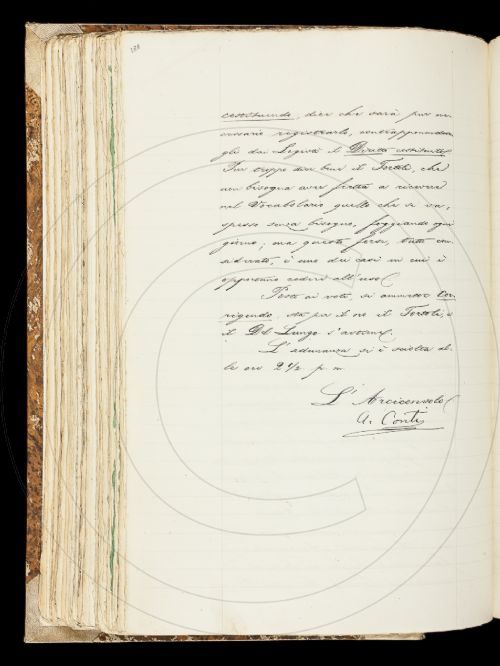 costituendo, dice che sarà pur ne-
cessario registrarlo, contrapponendo-
gli dai Legisti il Diritto costituito.
Pur troppo dice bene il Tortoli, che
non bisogna aver fretta a ricevere
nel Vocabolario quello che si va,
spesso senza bisogno, foggiando ogni
giorno; ma questo forse, tutto con-
siderato, è uno dei casi in cui è
opportuno cedere all'uso.
Posto ai voti, si ammette Cor-
rigendo, sta per il no il Tortoli, e
il Del Lungo s'astiene.
L'adunanza si è sciolta al-
le ore 2 1/2 p. m.
L'Arciconsolo
A. Conti